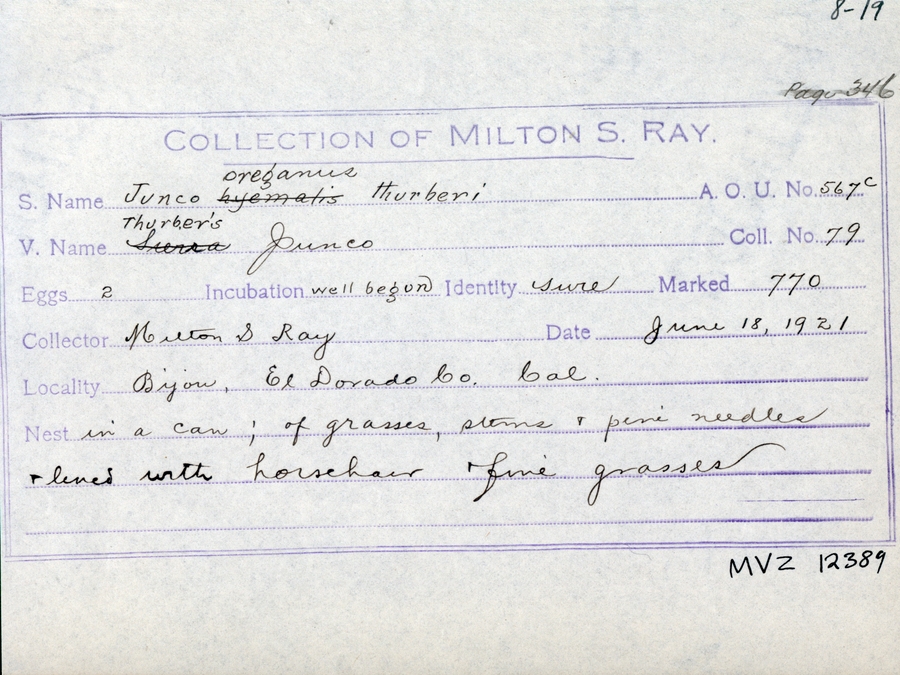 8-19
Page 346
COLLECTION OF MILTON S. RAY.
oreganus
S. Name Junco hyemalis thurberi A. O. U. No. 567c
Thurber's
V. Name Sierra Junco Coll. No. 79
Eggs 2 Incubation well begun Identity sure Marked 770
Collector Milton S Ray Date June 18, 1921
Locality Bijou, El Dorado Co. Cal.
Nest in a can ; of grasses, stems + pine needles
+ lined with horsehair + fine grasses
MVZ 12389